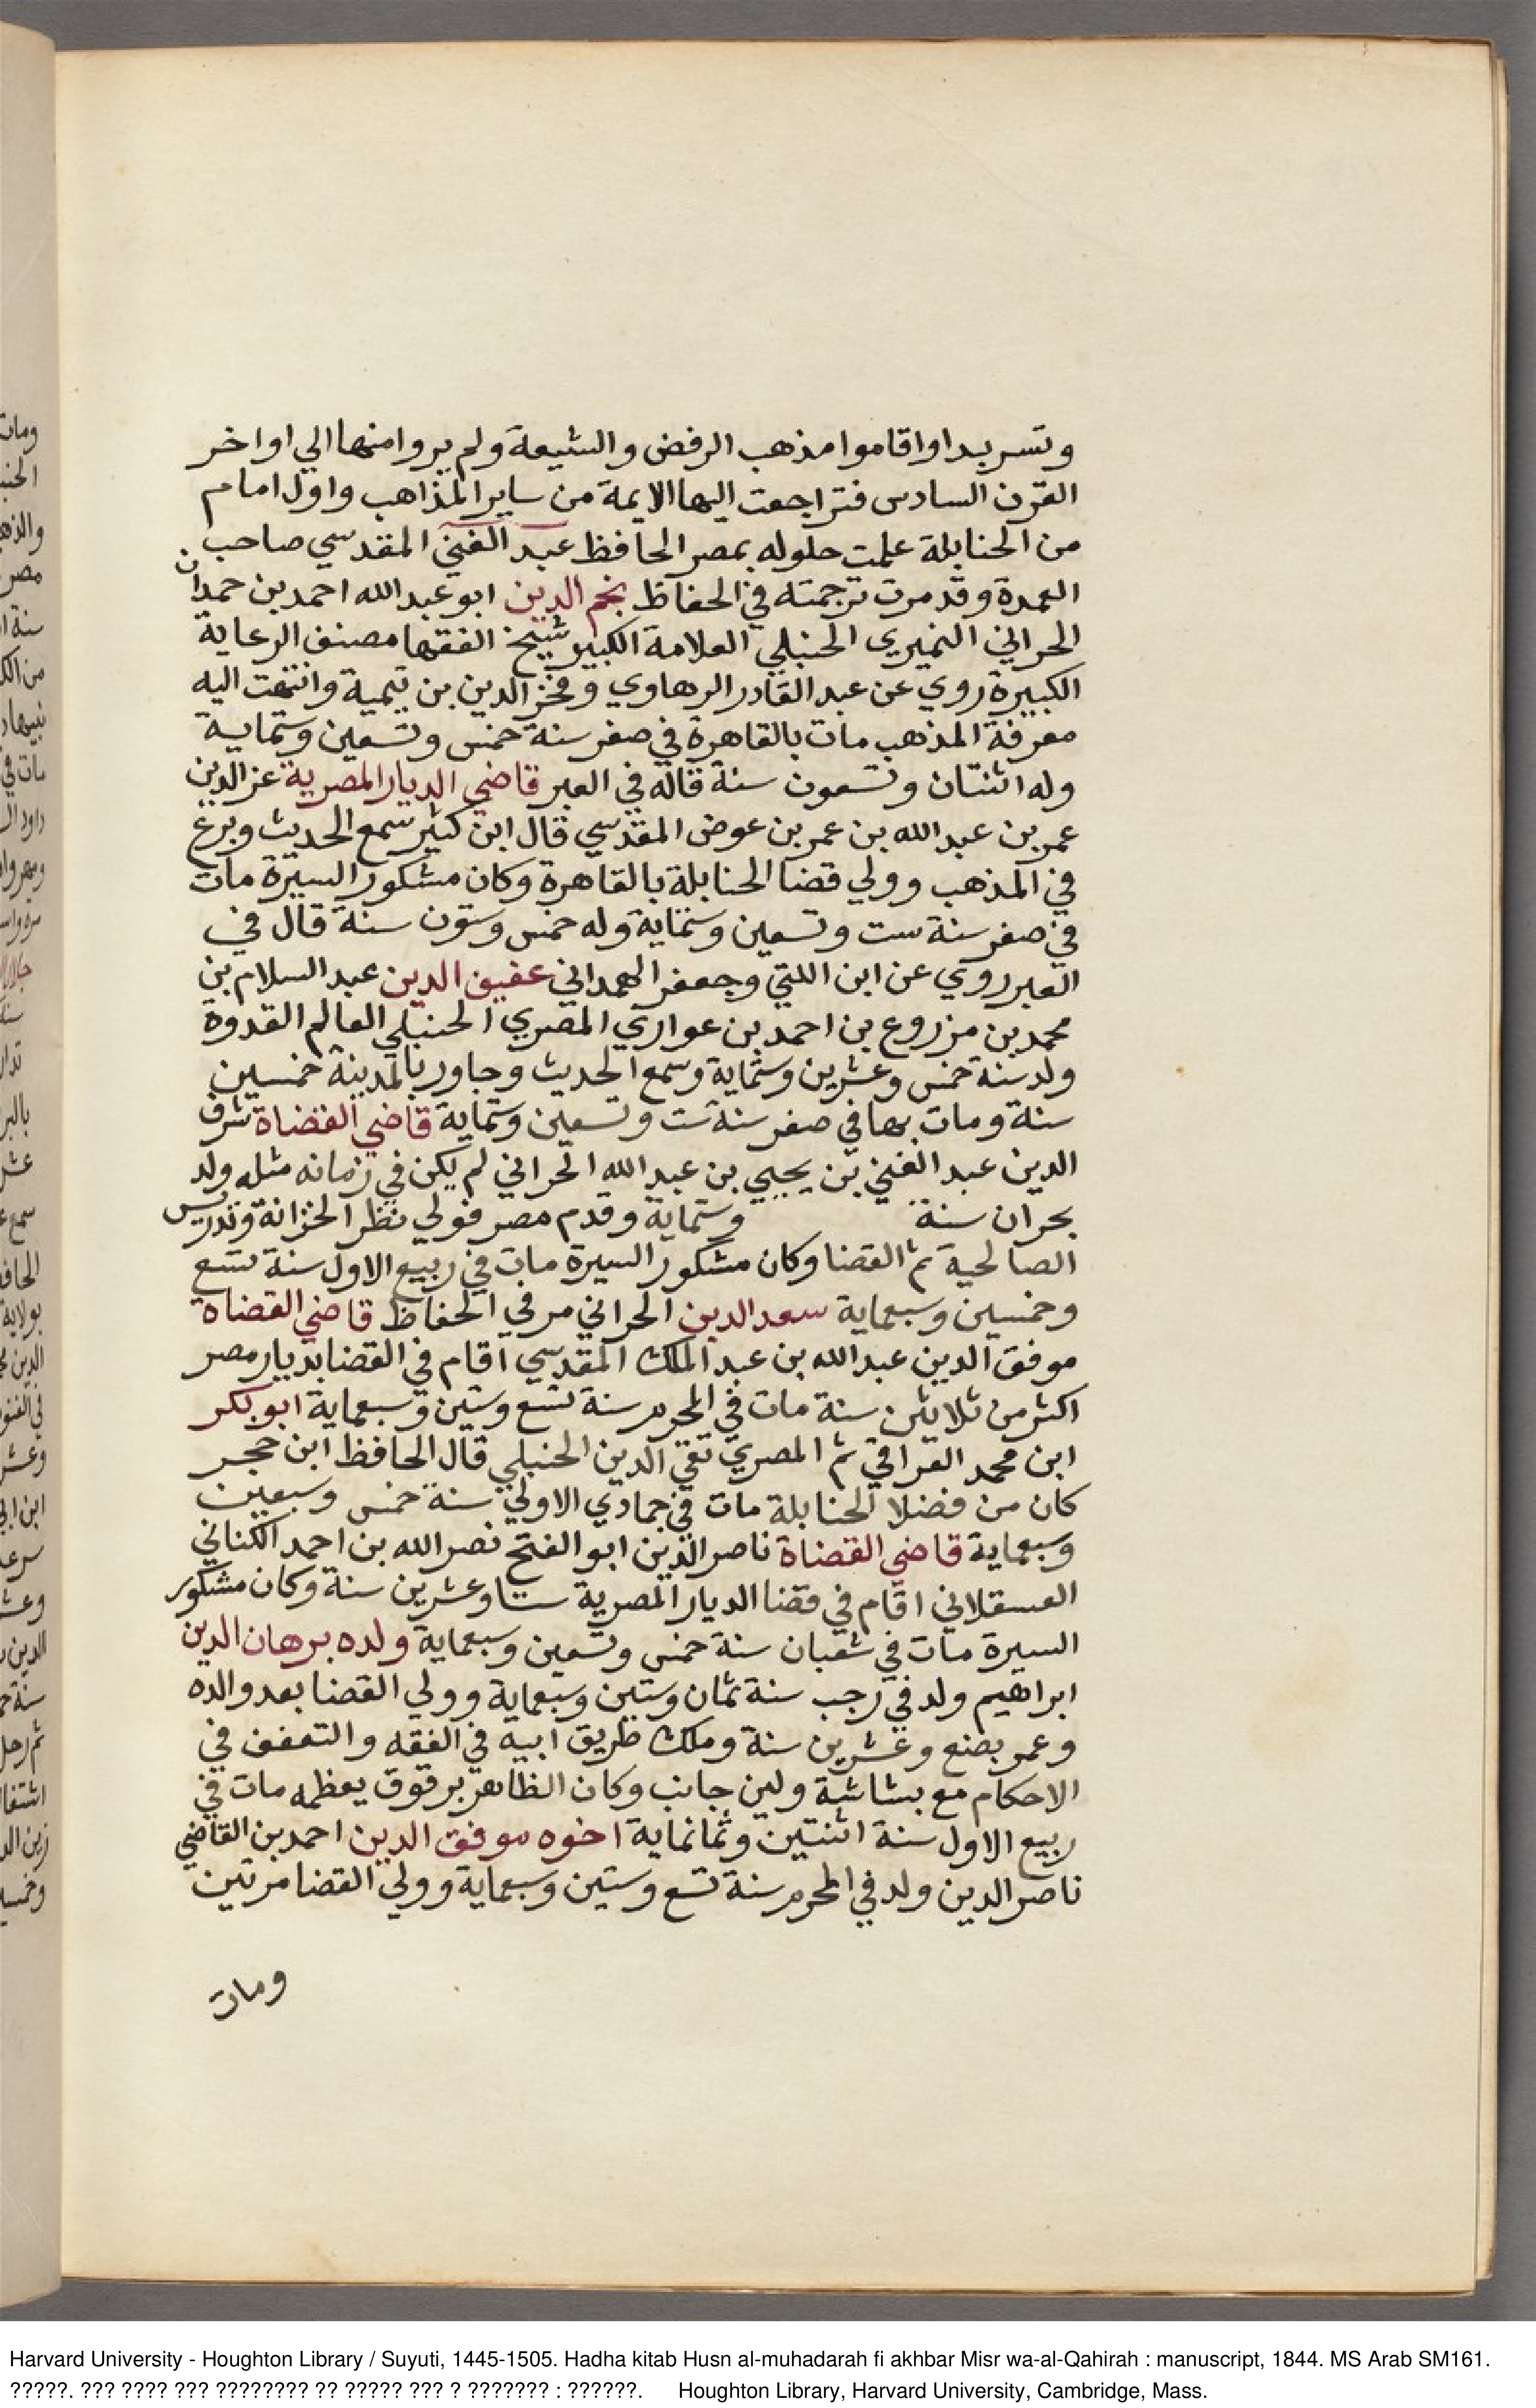 وتسريدا واقاموا مذهب الرفض والشيعة ولم يروا منها الي اواخر
القرن السادس فتراجعت اليها الايمة من ساير المذاهب واول امام
من الحنابلة علمت حلوله بمصر الحافظ عبد الغني المقدسي صاحب
العمدة وقد مرت ترجمته في الحفاظ نجم الدين ابو عبد الله احمد بن حمدان
الحراني النميري الحنبلي العلامة الكبير شيخ الفقها مصنف الرعاية
الكبيرة روي عن عبد القادر الرهاوي وفخر الدين بن تيمية وانتهت اليه
معرفة المذهب مات بالقاهرة في صفر سنة خمس وتسعين وستماية
وله اثنتان وتسعون سنة قاله في العبر قاضي الديار المصرية عز الدين
عمر بن عبد الله بن عمر بن عوض المقدسي قال ابن كثير سمع الحديث وبرع
في المذهب وولي قضا الحنابلة بالقاهرة وكان مشكور السيرة مات
في صفر سنة ست وتسعين وستماية وله خمس وستون سنة قال في
العبر روي عن ابن اللتي وجعفر الهمداني عفيف الدين عبد السلام بن
محمد بن مزروع بن احمد بن عوازي المصري الحنبلي العالم القدوة
ولد سنة خمس وعشرين وستماية وسمع الحديث وجاور بالمدينة خمسين
سنة ومات بها في صفر سنة ست وتسعين وستماية قاضي القضاة شرف
الدين عبد الغني بن يحيي بن عبد الله الحراني لم يكن في زمانه مثله ولد
بحران سنة وستماية وقدم مصر فولي نظر الخزانة وتدريس
الصالحية ثم القضا وكان مشكور السيرة مات في ربيع الاول سنة تسع
وخمسين وسبعماية سعد الدين الحراني مر في الحفاظ قاضي القضاة
موفق الدين عبد الله بن عبد الملك المقدسي اقام في القضا بديار مصر
اكثر من ثلاثين سنة مات في المحرم سنة تسع وستين وسبعماية ابو بكر
ابن محمد القراقي ثم المصري تقي الدين الحنبلي قال الحافظ ابن حجر
كان من فضلا الحنابلة مات في جمادي الاولي سنة خمس وسبعين
وسبعماية قاضي القضاة ناصر الدين ابو الفتح نصر الله بن احمد الكناني
العسقلاني اقام في قضا الديار المصرية ستا وعشرين سنة وكان مشكور
السيرة مات في شعبان سنة خمس وتسعين وسبعماية ولده برهان الدين
ابراهيم ولد في رجب سنة ثمان وستين وسبعماية وولي القضا بعد والده
وعمر بضع وعشرين سنة وملك طريق ابيه في الفقه والتعفف في
الاحكام مع بشاشة ولين جانب وكان الظاهر برقوق يعظمه مات في
ربيع الاول سنة اثنتين وثمانماية اخوه موفق الدين احمد بن القاضي
ناصر الدين ولد في المحرم سنة تسع وستين وسبعماية وولي القضا مرتين
ومات
Harvard University - Houghton Library / Suyuti, 1445-1505. Hadha kitab Husn al-muhadarah fi akhbar Misr wa-al-Qahirah : manuscript, 1844. MS Arab SM161.
?????. ??? ???? ??? ???????? ?? ????? ??? ? ??????? : ??????. Houghton Library, Harvard University, Cambridge, Mass.